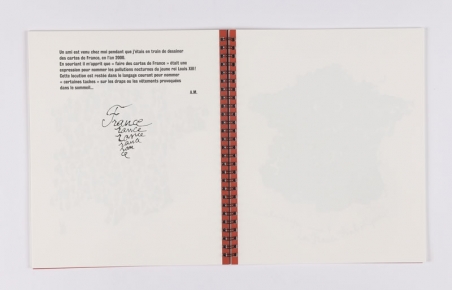 Un ami est venu chez moi pendant que j'étais en train de dessiner
des cartes de France, en l'an 2000.
En souriant il m'apprit que « faire des cartes de France » était une
expression pour nommer les pollutions nocturnes du jeune roi Louis XIII !
Cette locution est restée dans le langage courant pour nommer
« certaines taches » sur les draps ou les vêtements provoquées
dans le sommeil...
A.M.
France
rance